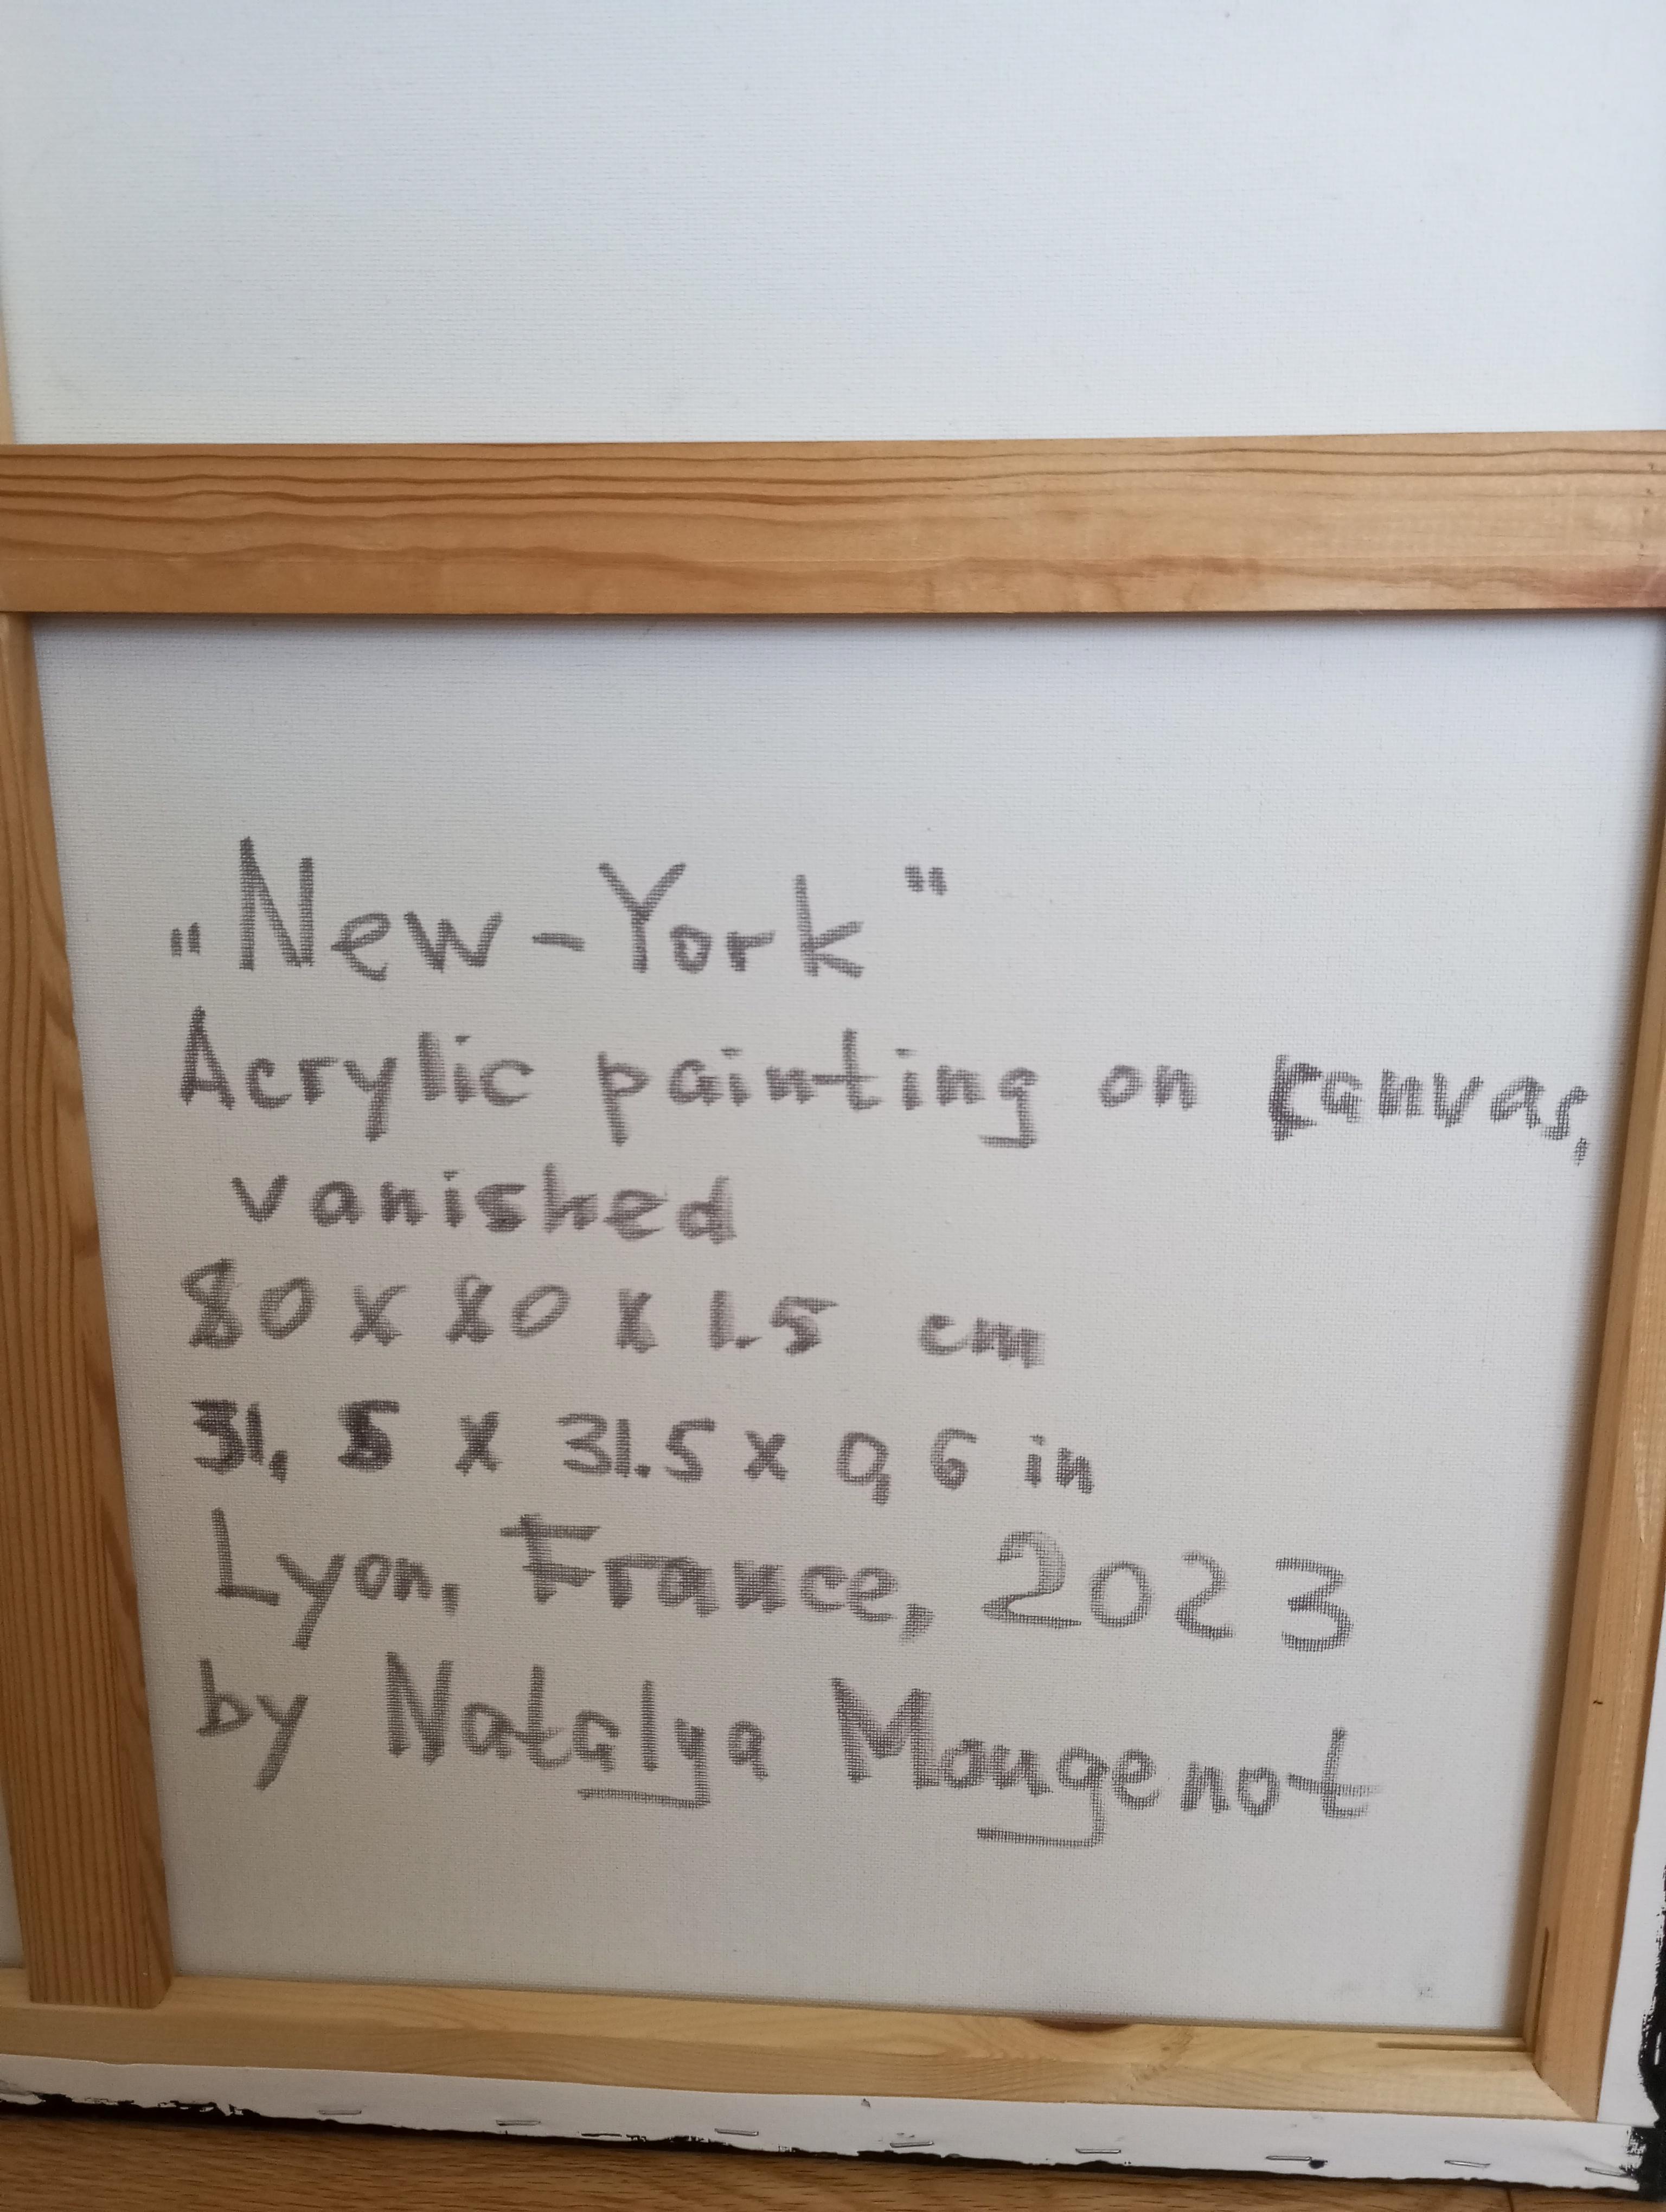 „New-York"
Acrylic painting on canvas,
vanished
80 x 80 x 1.5 cm
31,5 x 31.5 x 0,6 in
Lyon, France, 2023
by Natalya Mougenot